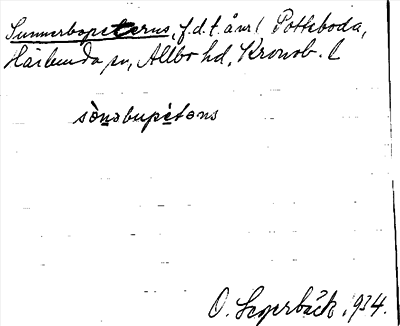 Sunnerbopeterus, f.d.t. å nr 1 Potteboda,
Härlunda sn, Allbo hd, Kronob. l
sònəbupètəns
O. Segerbäck, 1934.